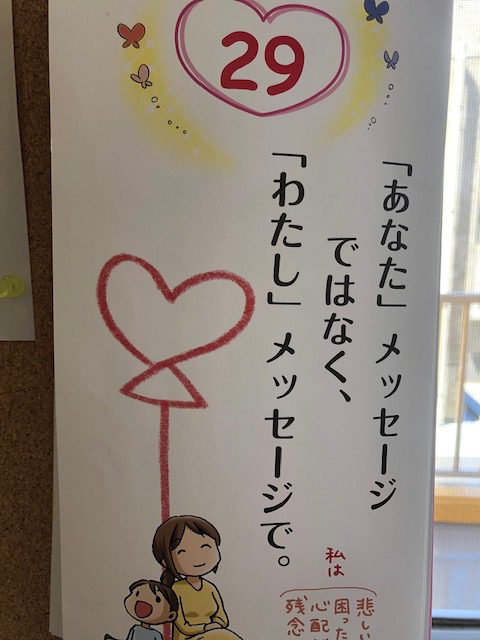 29
「あなた」メッセージ
ではなく、
「わたし」メッセージで。
私は
悲しい
困った
心配
残念